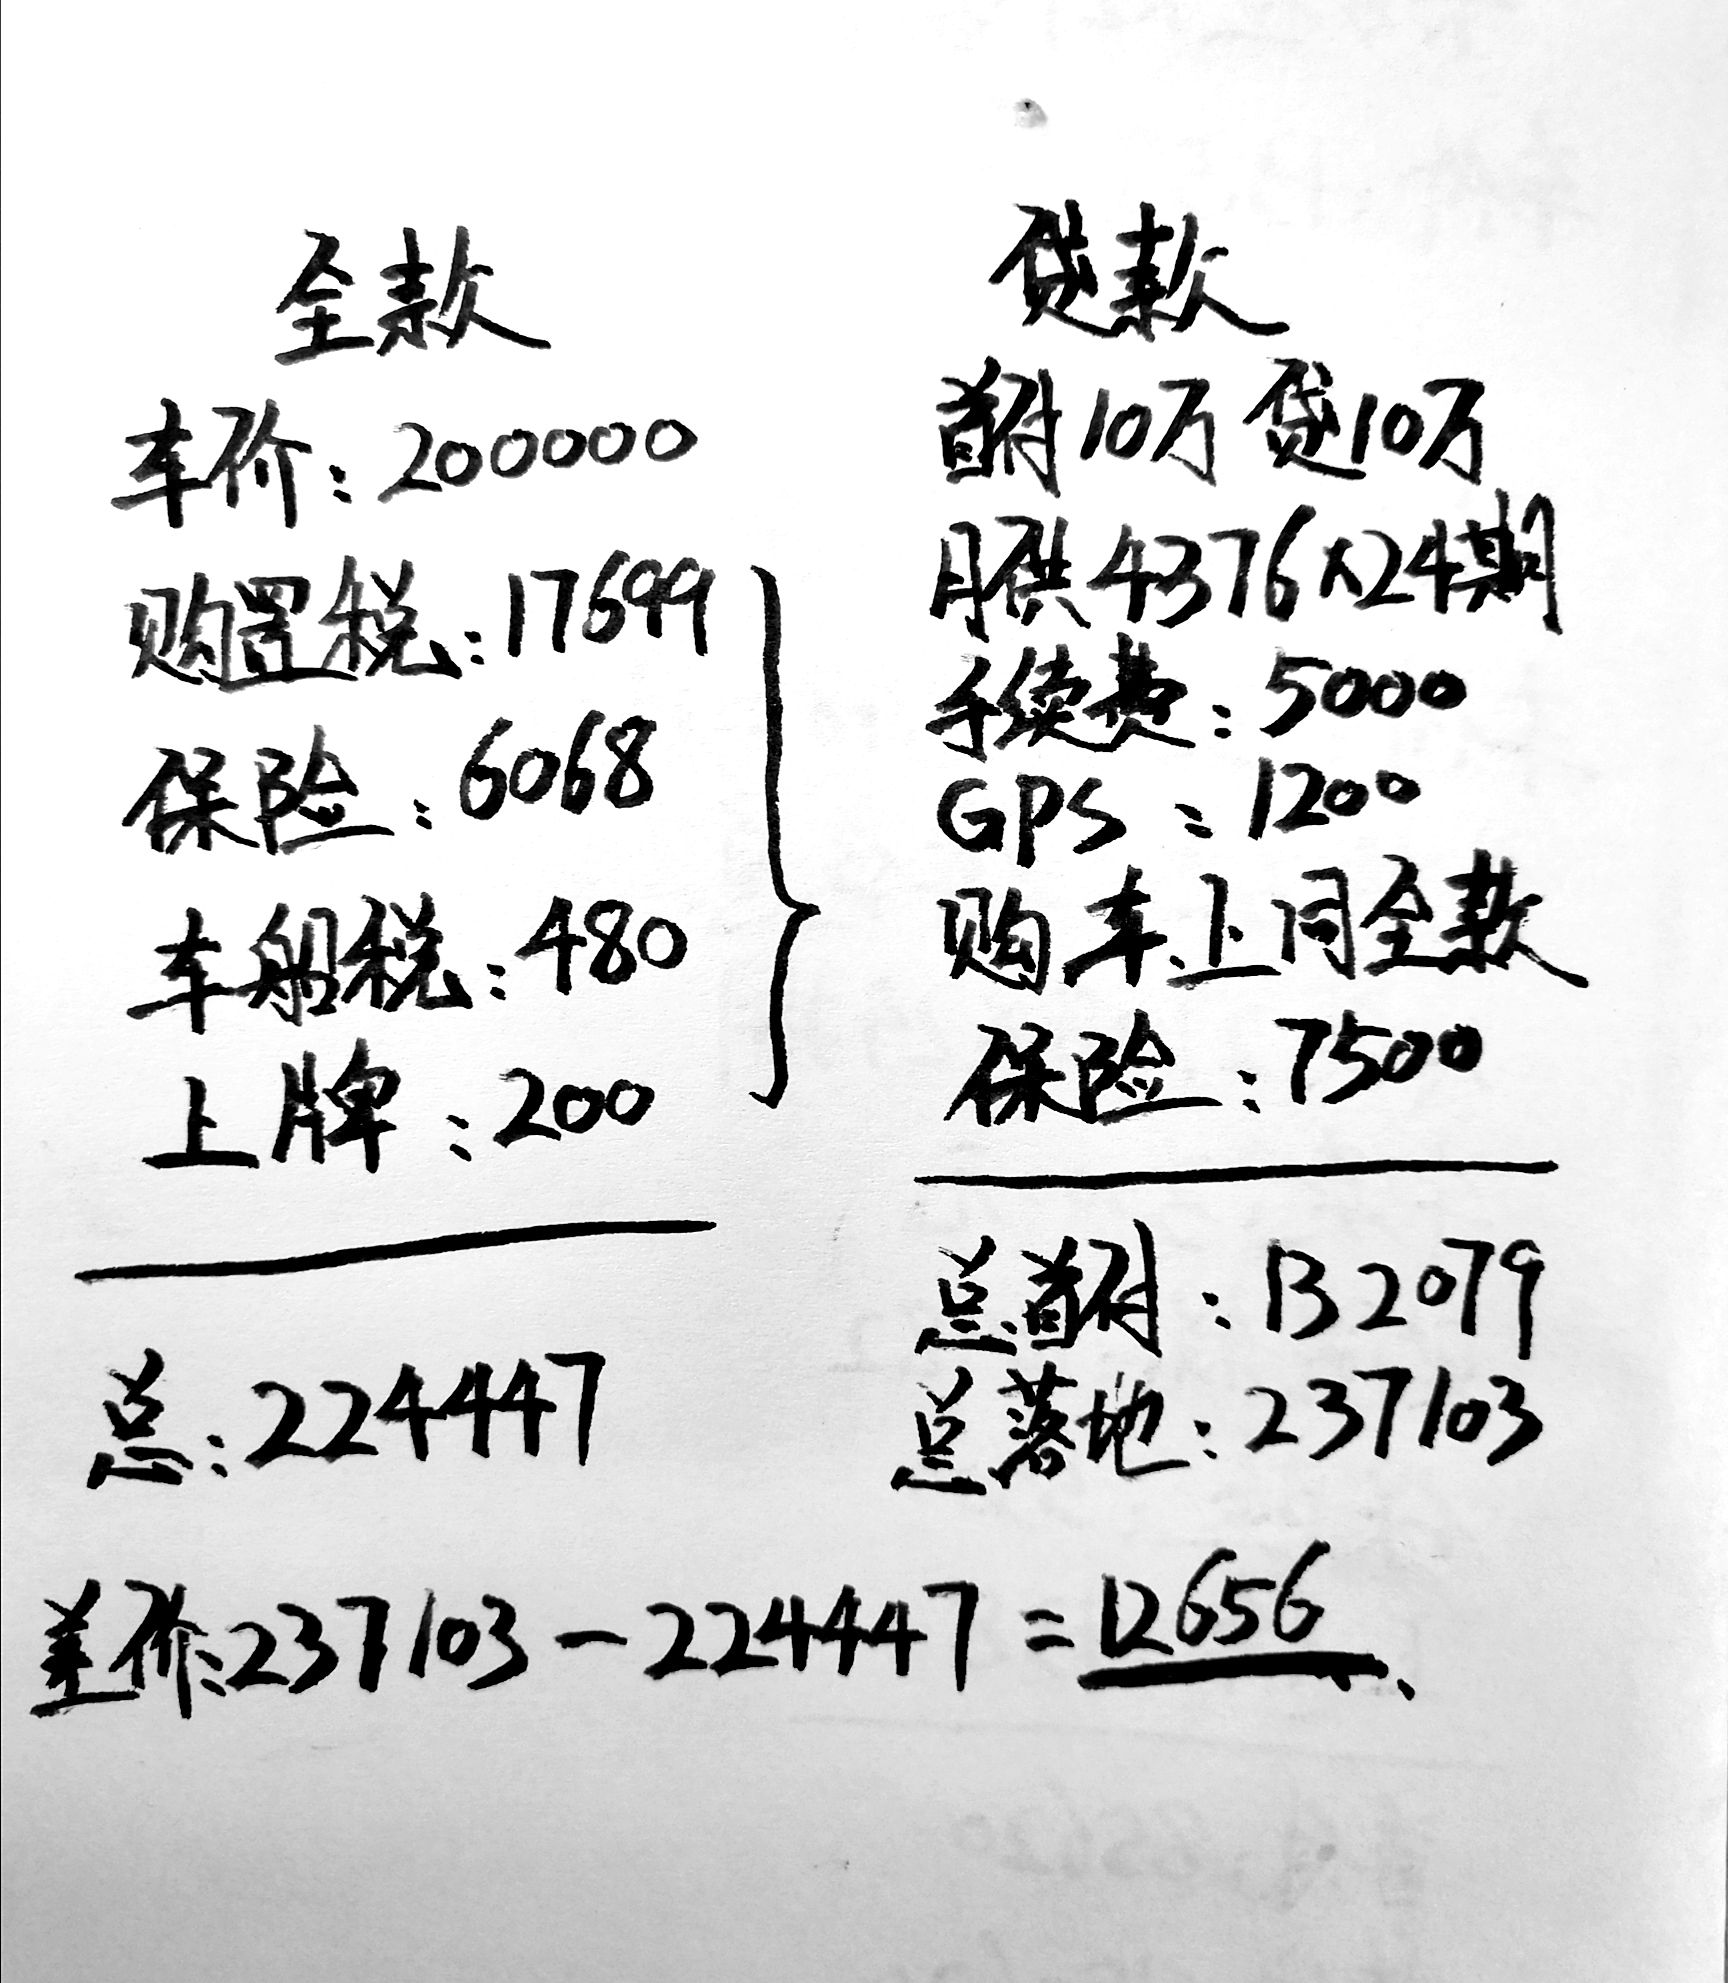 全款
车价：200000
购置税：17699
保险：6068
车船税：480
上牌：200
总：224447
贷款
首付10万 贷10万
月供4376×24期
手续费：5000
GPS：1200
购车上同全款
保险：7500
总首付：132079
总落地：237103
差价：237103－224447＝12656